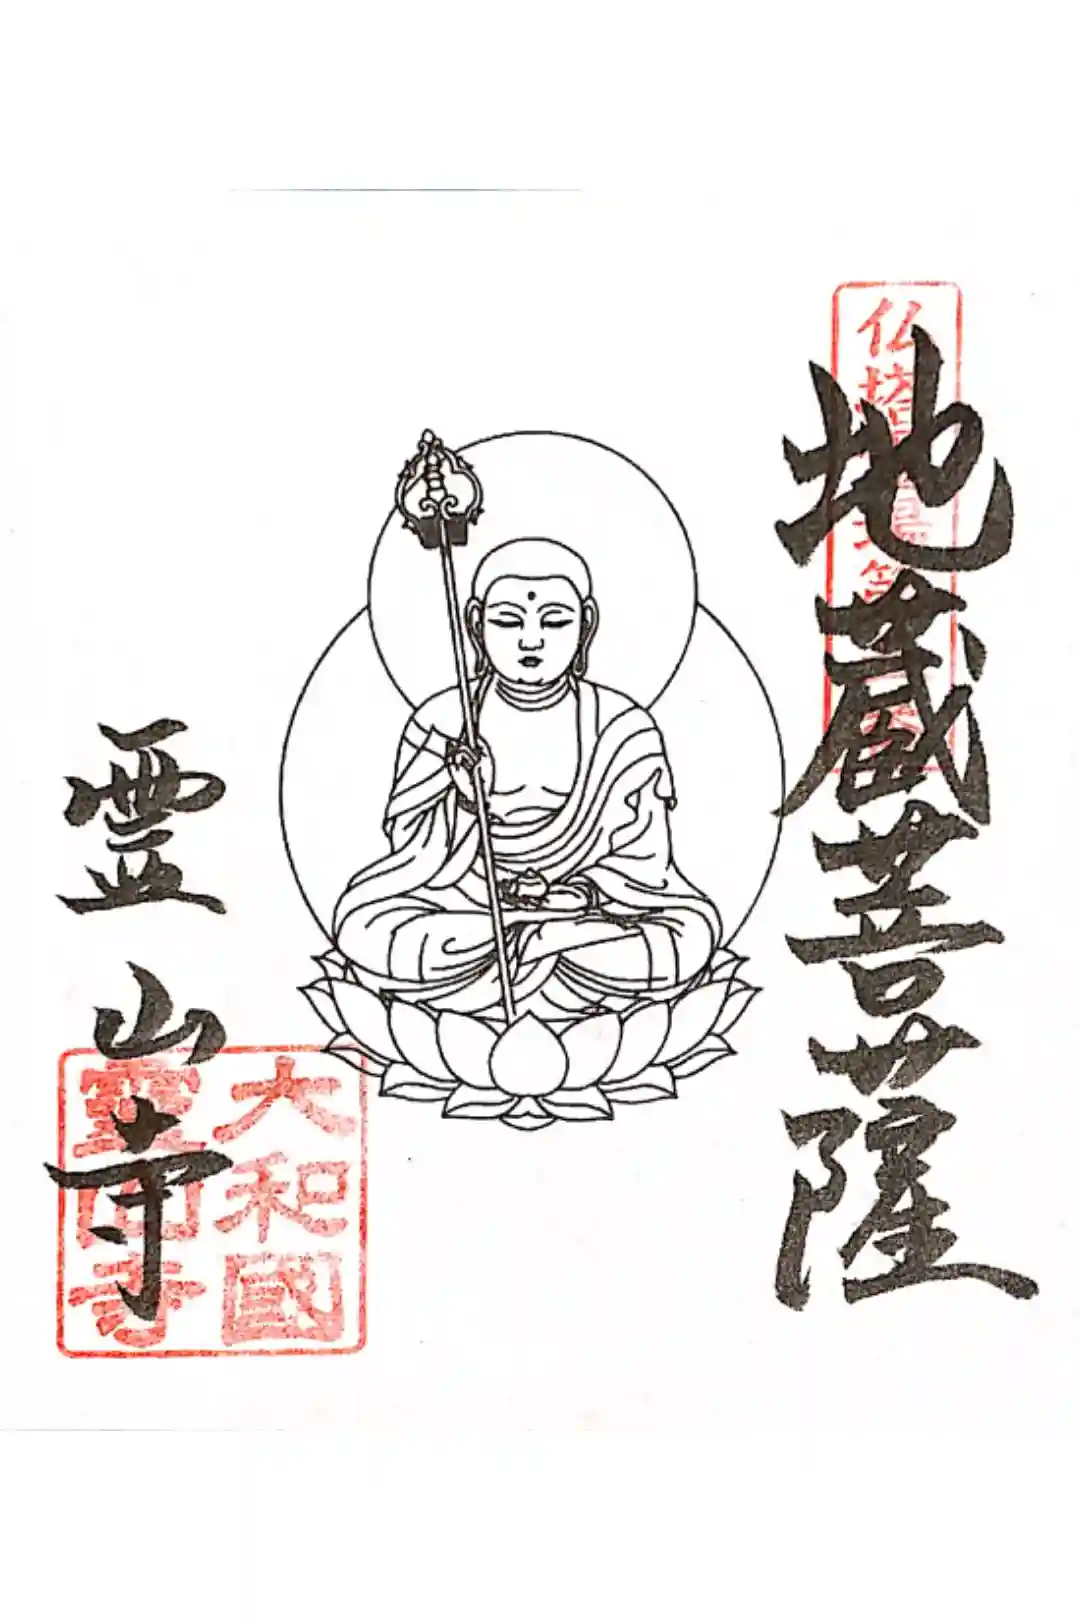 地蔵菩薩
霊山寺
大和國
霊山寺